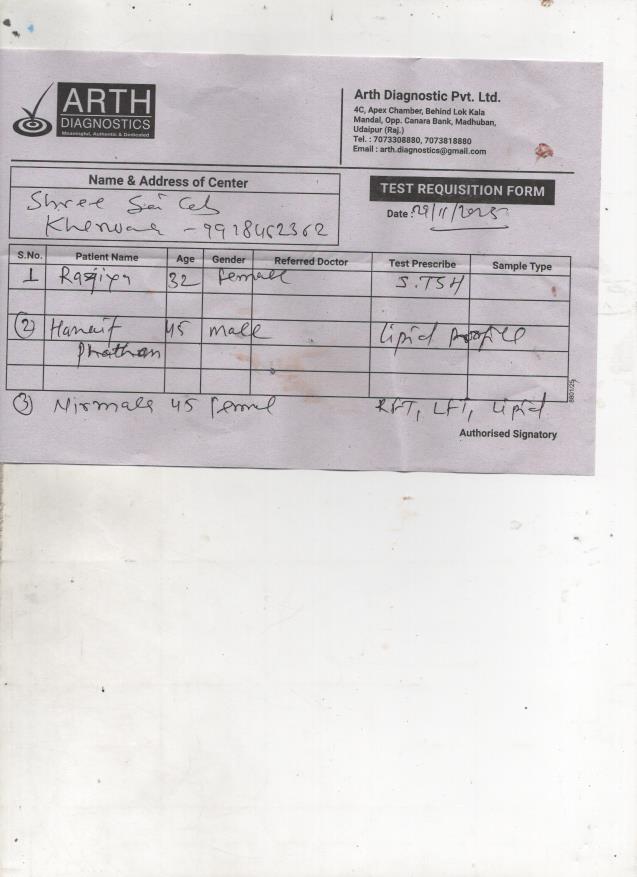 ARTH
DIAGNOSTICS
Meaningful, Authentic & Dedicated
Arth Diagnostic Pvt. Ltd.
4C, Apex Chamber, Behind Lok Kala
Mandal, Opp. Canara Bank, Madhuban,
Udaipur (Raj.)
Tel. : 7073308880, 7073818880
Email : arth.diagnostics@gmail.com
Name & Address of Center
Shree Sai
- 9928462362
TEST REQUISITION FORM
Date : 29/11/2025
S.No. Patient Name Age Gender Referred Doctor Test Prescribe Sample Type
1 32 female S.TSH
2 Hanaif 45 male Lipid profile
Phathan
3 Nirmala 45 femal RFT, LFT, Lipid
Authorised Signatory